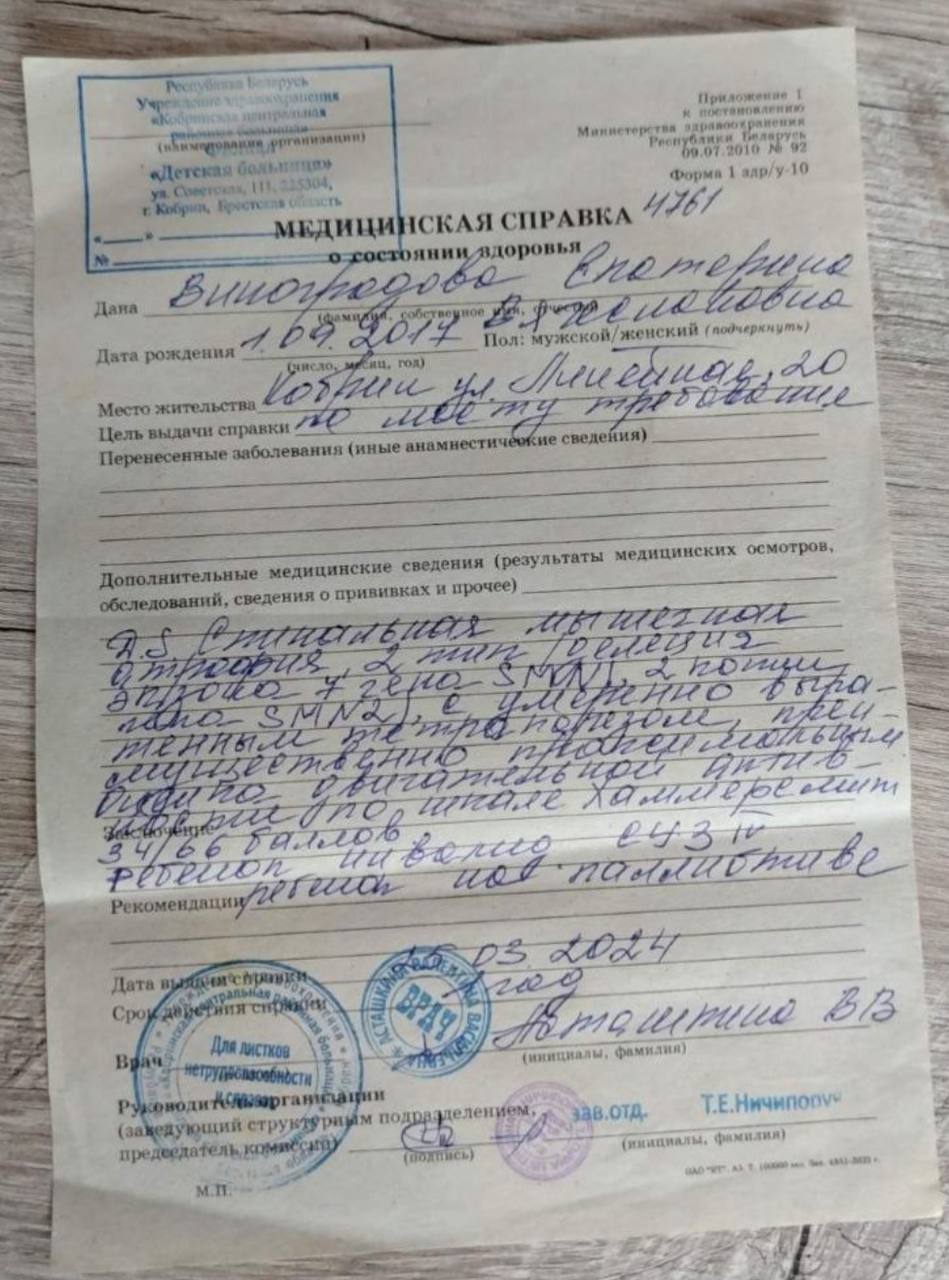 Республика Беларусь
Учреждение здравоохранения
«Кобринская центральная
районная больница»
(наименование организации)
«Детская больница»
ул. Советская, 111, 225304,
г. Кобрин, Брестская область
«___» ___
№
Приложение 1
к постановлению
Министерства здравоохранения
Республики Беларусь
09.07.2010 № 92
Форма 1 здр/у-10
МЕДИЦИНСКАЯ СПРАВКА 4761
о состоянии здоровья
Дана Виноградова Екатерина
(фамилия, собственное имя, отчество)
Вячеславовна
Дата рождения 1.09.2017 Пол: мужской/женский (подчеркнуть)
(число, месяц, год)
Место жительства Кобрин ул. Линейная, 20
Цель выдачи справки по месту требования
Перенесенные заболевания (иные анамнестические сведения)
Дополнительные медицинские сведения (результаты медицинских осмотров,
обследований, сведения о прививках и прочее)
D.S Спинальная мышечная
атрофия, 2 тип (делеция
экзона 7 гена SMN1, 2 копии
гена SMN2), с умеренно выра-
женным тетрапарезом, преи-
мущественно проксимальным
двигательной актив-
ности по шкале Хаммерсмит
Заключение
34/66 баллов
Ребенок инвалид СУЗ IV
Рекомендации ребенок на паллиативе
Дата выдачи справки 03 2024
Срок действия справки 1 год
Врач Асташкина ВВ
(инициалы, фамилия)
АСТАШКИНА ВАЛЕНТИНА ВАСИЛЬЕВНА
ВРАЧ
Для листков
нетрудоспособности
и справок
Руководитель организации
(заведующий структурным подразделением,
председатель комиссии)
(подпись)
зав.отд. Т.Е.Ничипорук
(инициалы, фамилия)
М.П.